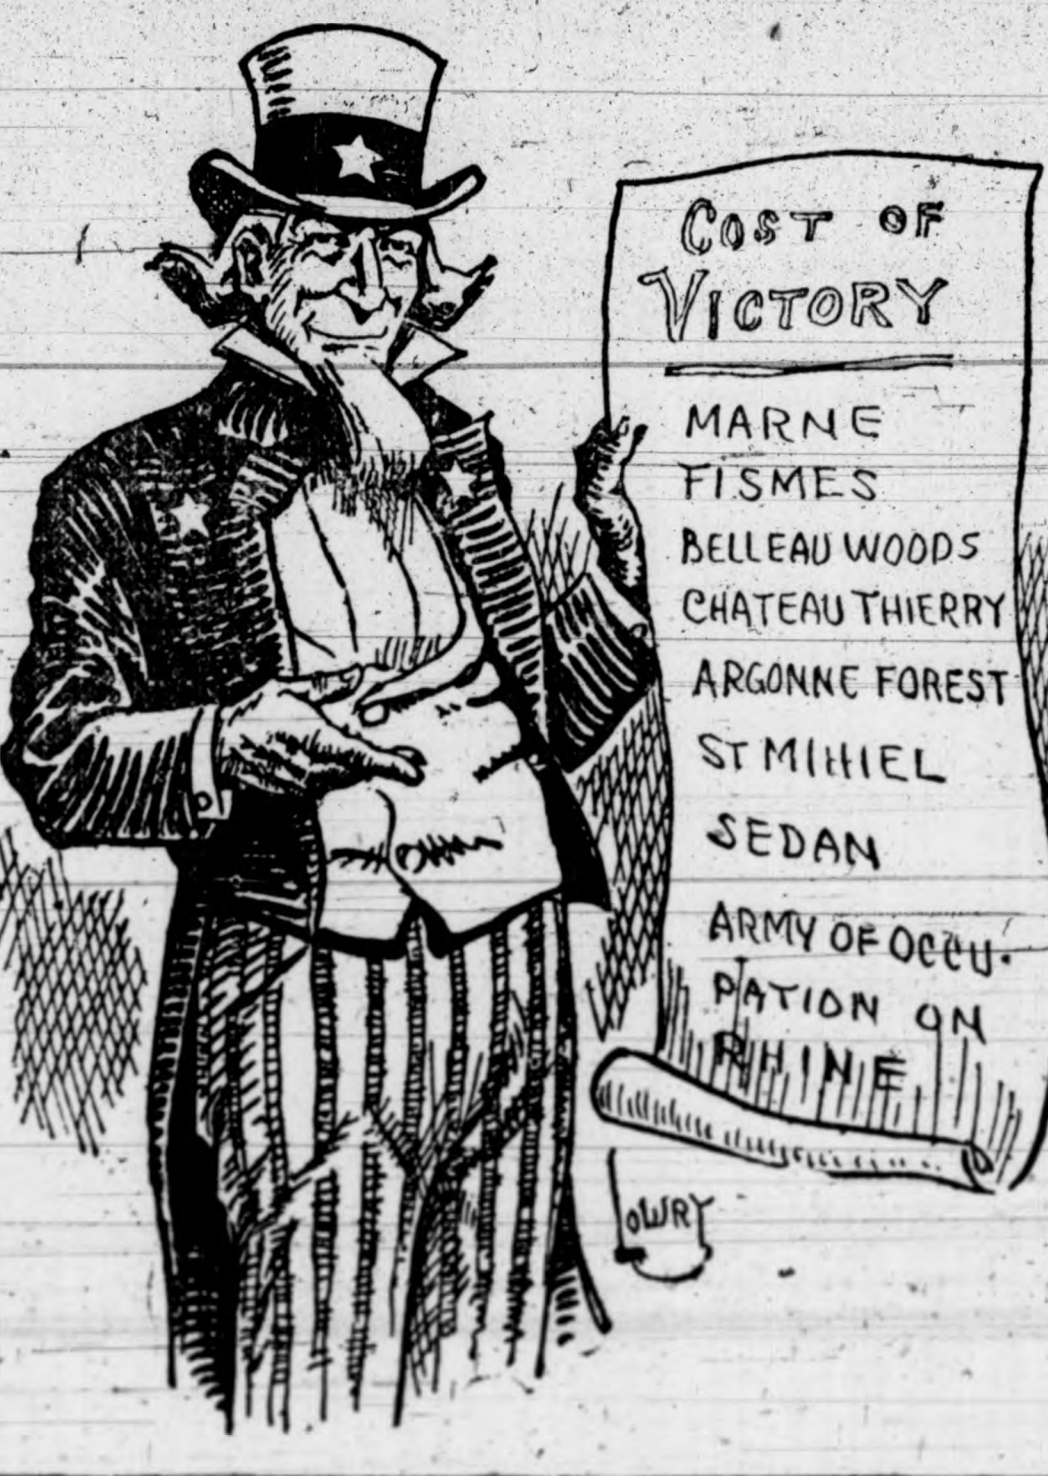 COST OF
VICTORY
MARNE
FISMES
BELLEAU WOODS
CHATEAU THIERRY
ARGONNE FOREST
ST MIHIEL
SEDAN
ARMY OF OCCU-
PATION ON
RHINE
LOWRY